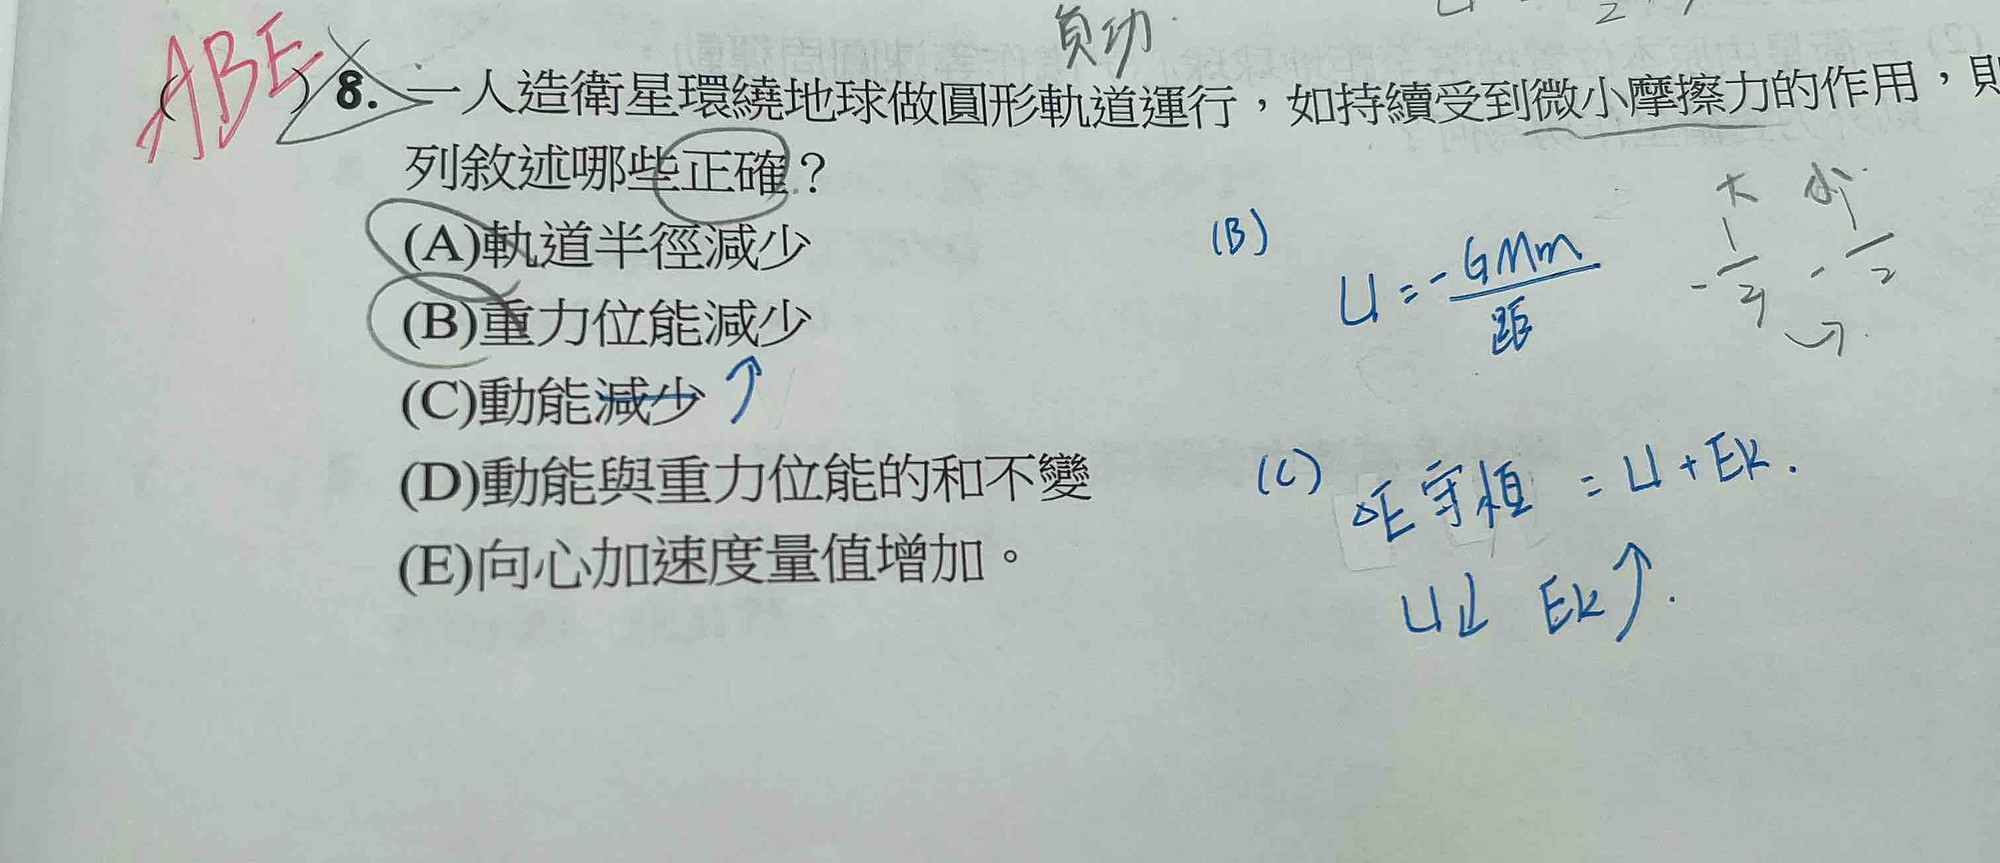 負功
ABE
( ) 8. 一人造衛星環繞地球做圓形軌道運行，如持續受到微小摩擦力的作用，則
列敘述哪些正確？
(A)軌道半徑減少
(B)重力位能減少
(C)動能減少 ↑
(D)動能與重力位能的和不變
(E)向心加速度量值增加。
(B) U = -GMm/距
大 小
(C) ΔE守恆 = U + Ek.
U↓ Ek↑.